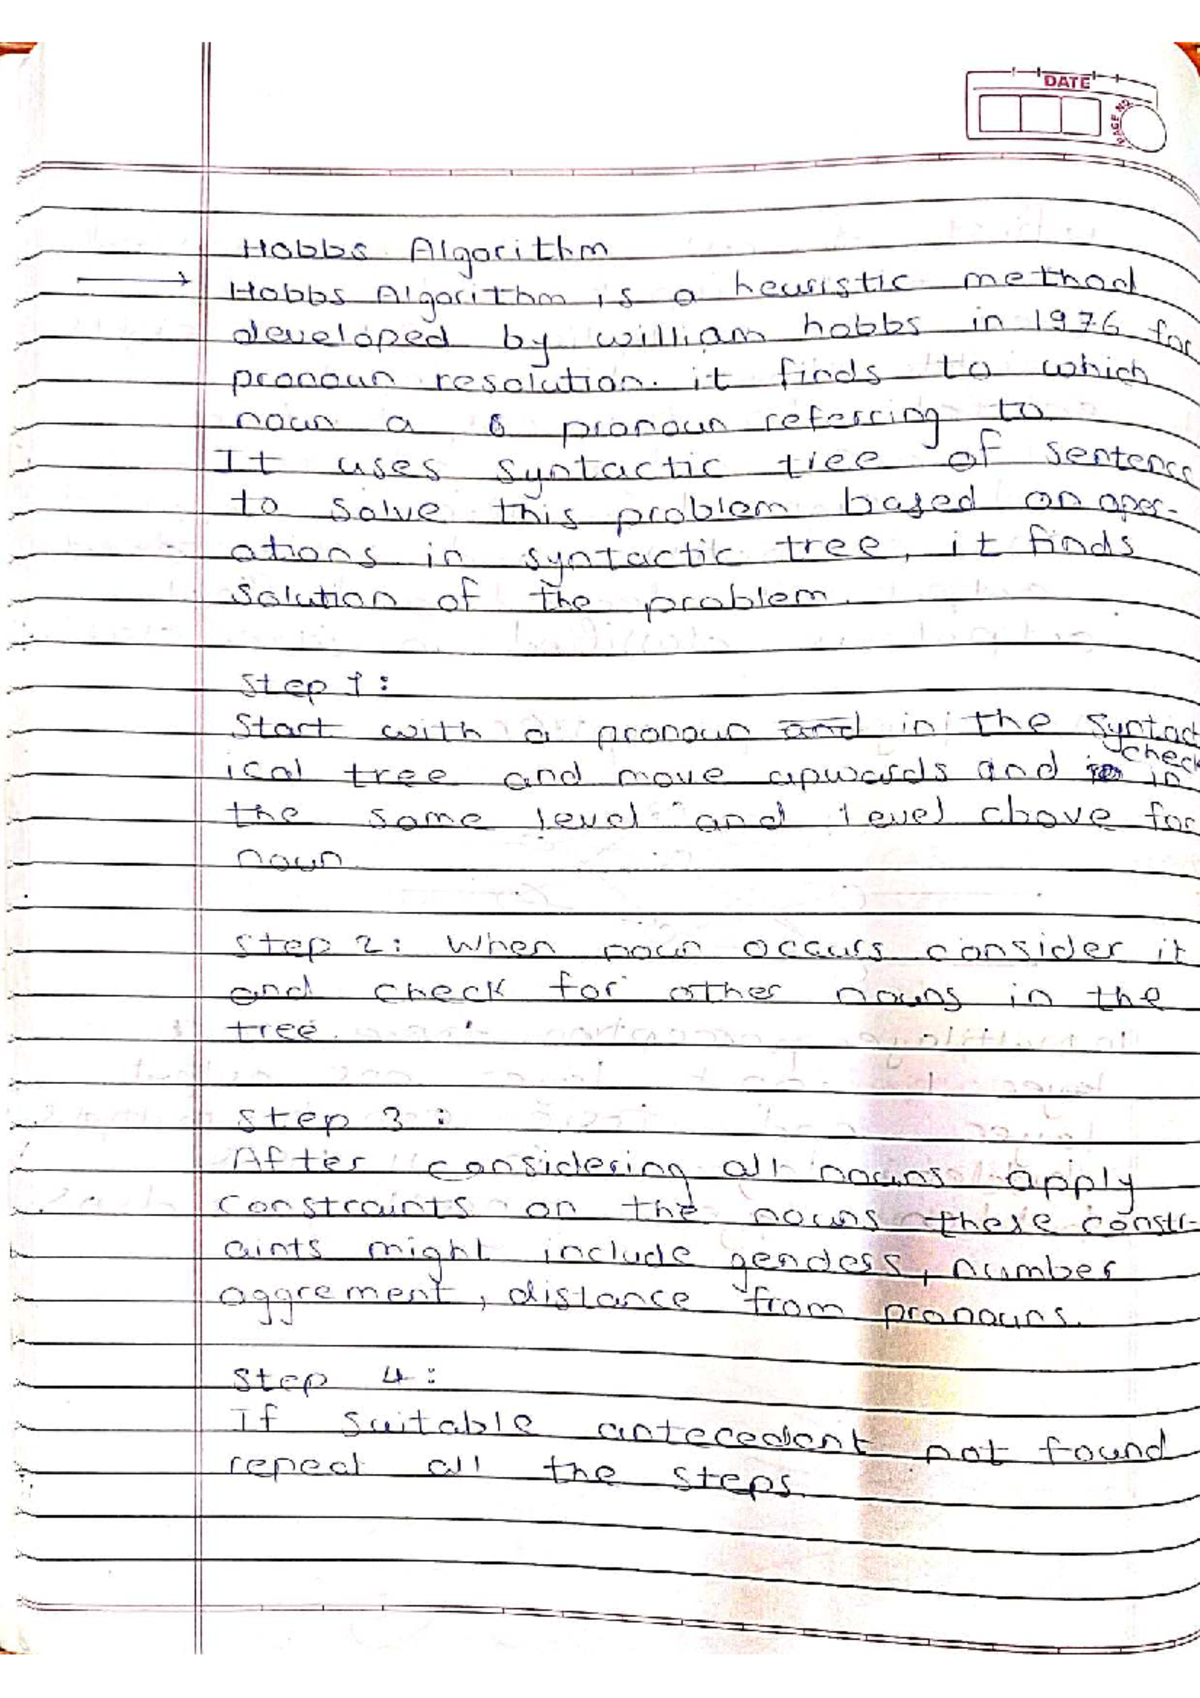 DATE
PAGE NO
Hobbs Algorithm
Hobbs Algorithm is a heuristic method
developed by william hobbs in 1976 for
pronoun resolution. it finds to which
noun a pronoun referring to
It uses syntactic tree of sentence
to solve this problem based on oper-
ations in syntactic tree, it finds
solution of the problem.
Step 1:
Start with a pronoun and in the syntact
ical tree and move upwards and check in
the same level and level above for
noun
Step 2: When noun occurs consider it
and check for other nouns in the
tree.
Step 3:
After considering all nouns apply
constraints on the nouns these constr-
aints might include genders, number
aggrement, distance from pronouns.
Step 4:
If suitable antecedent not found
repeat all the steps.